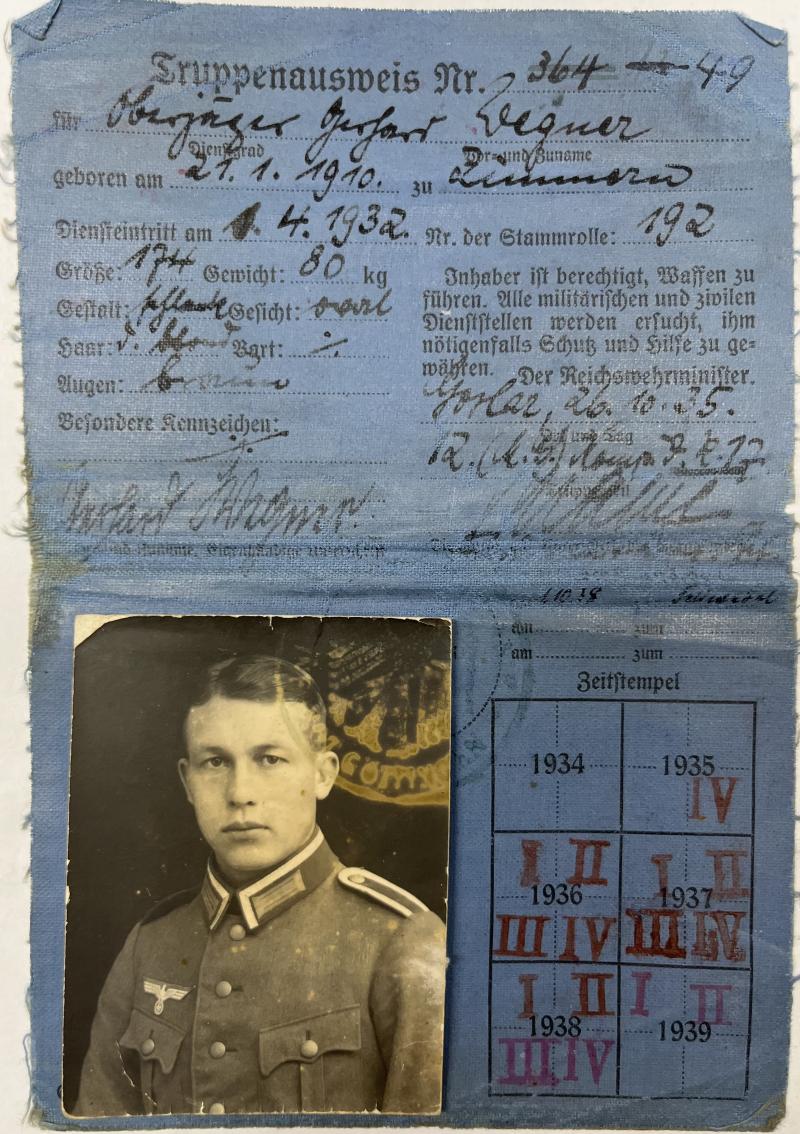 Truppenausweis Nr. 364 — 49
für Oberjäger Gerhard Wegner
Dienstgrad Vor- und Zuname
geboren am 21. 1. 1910. zu Zimmern
Diensteintritt am 1. 4. 1932. Nr. der Stammrolle: 192
Größe: 174 Gewicht: 80 kg
Gestalt: schlank Gesicht: oval
Haar: d. blond Bart: ·/.
Augen: braun
Besondere Kennzeichen:
·/.
Gerhard Wegner.
Inhaber ist berechtigt, Waffen zu
führen. Alle militärischen und zivilen
Dienststellen werden ersucht, ihm
nötigenfalls Schutz und Hilfe zu ge-
währen.
Der Reichswehrminister.
Goslar, 26. 10. 35.
Ort und Tag
12. (M.G.) Komp. J. R. 17
1.10.38 Feldwebel
am zum
am zum
Zeitstempel
1934 1935
IV
I II I II
1936 1937
III IV III IV
I II I II
1938 1939
III IV